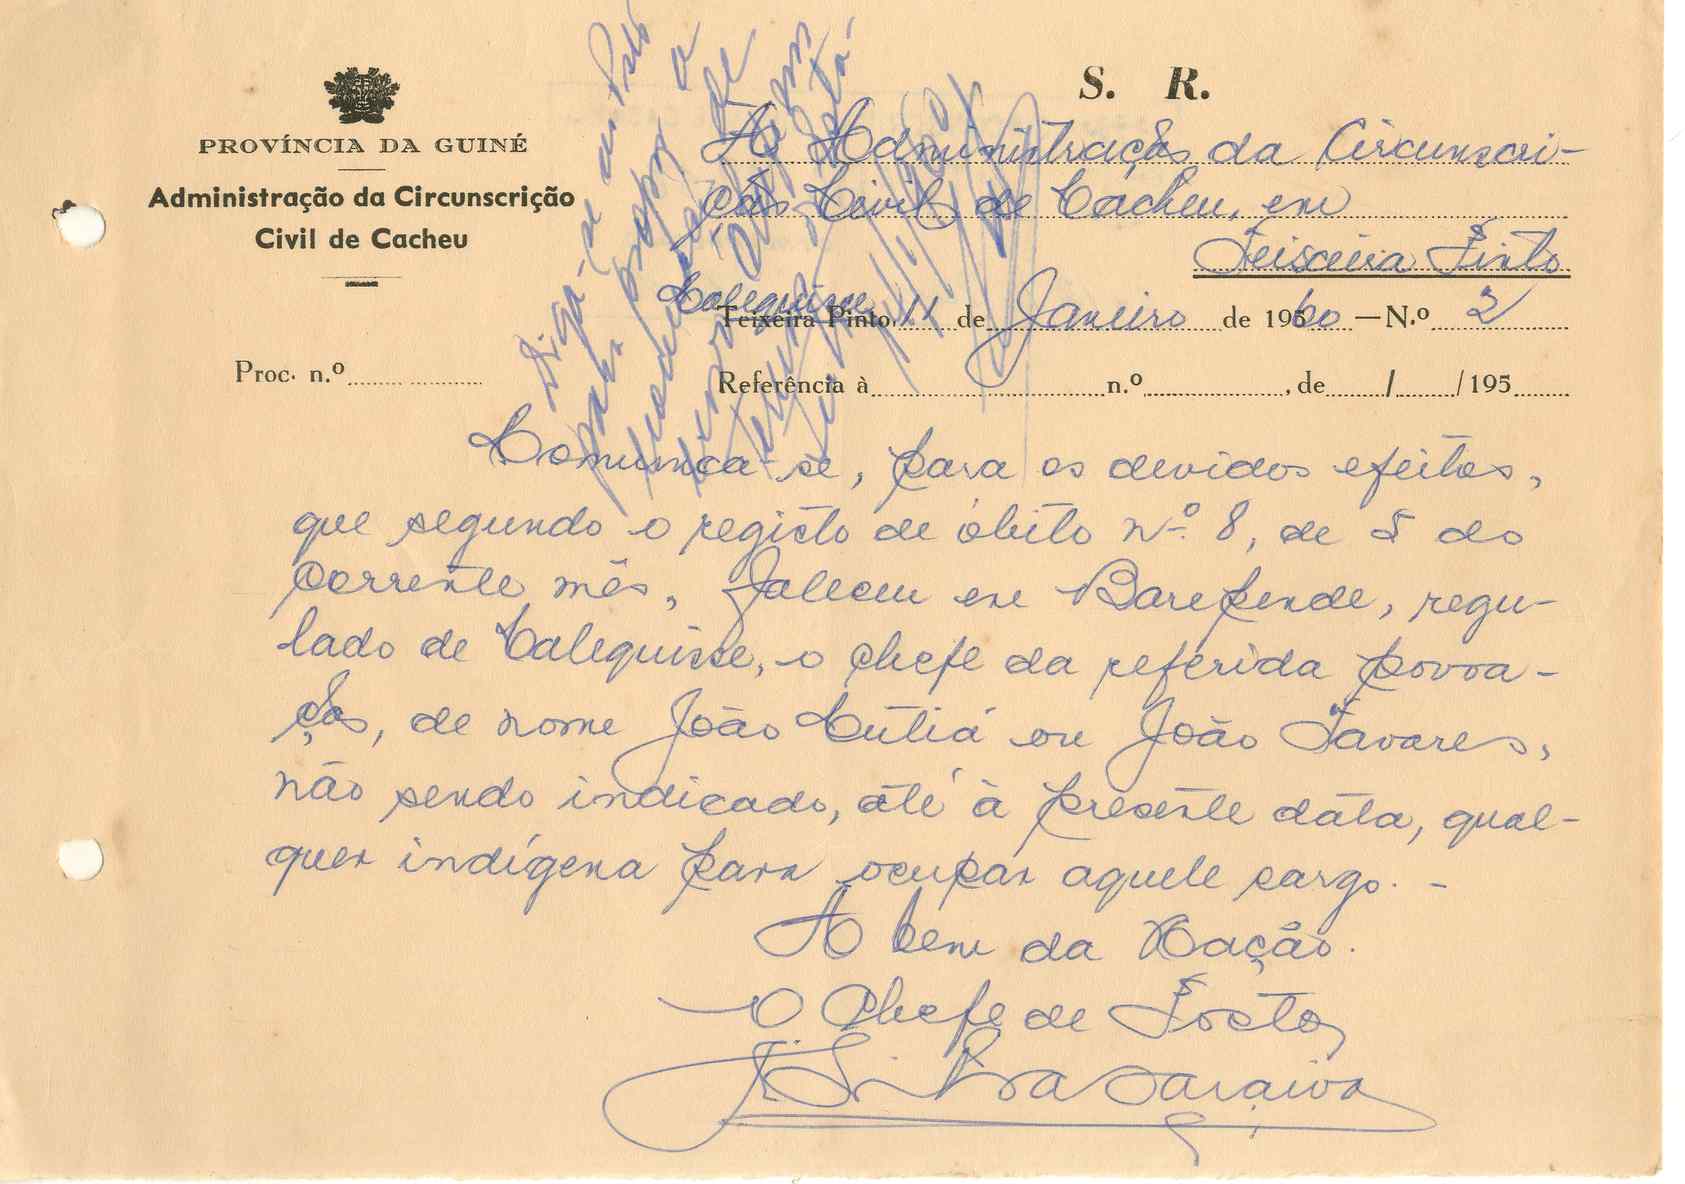 S. R.
PROVÍNCIA DA GUINÉ
Administração da Circunscrição
Civil de Cacheu
À Administração da Circunscri-
ção Civil de Cacheu, em
Teixeira Pinto
Calequisse
Teixeira Pinto 11 de Janeiro de 1960 —N.º 2
Proc. n.º
Referência à n.º , de / /195
Diga-se ao
para propor a
de
Comunica-se, para os devidos efeitos,
que segundo o registo de óbito nº. 8, de 5 do
corrente mês, faleceu em Barepende, regu-
lado de Calequisse, o chefe da referida povoa-
ção, de nome João Cútiá ou João Tavares,
não sendo indicado, até à presente data, qual-
quer indígena para ocupar aquele cargo. -
A bem da Nação.
O Chefe de Posto,
Saraiva